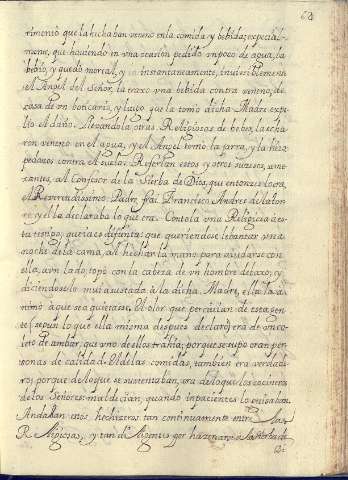 68
timento que la hechaban veneno en la comida y bebida, especial-
mente, que haviendo en una ocasion pedido un poco de agua, la
bebio, y quedo mortal, y instantaneamente, invisiblemente
el Angel del Señor, la traxo una bebida contra veneno, de
casa de un boticario, y luego que la tomò dicha Madre expe
lio el daño. Llevandola otras Religiosas de beber, la echa
ron veneno en el agua, y el Angel tomò la jarra, y la hizo
pedazos contra el suelo. Referian estos y otros sucesos, seme
jantes, al Confesor de la Sierba de Dios, que entonces lo era,
el Reverendissimo Padre frai Francisco Andres de la torre
y ella declaraba lo que era. Contola una Religiosa à es
te tiempo, que ia es difunta: que queriendose lebantar una
noche de la cama, al hechar la mano para aiudarse con
ella, a un lado, topò con la cabeza de un hombre debaxo; y
diciendoselo mui asustada à la dicha Madre, ella la a
nimò à que se aquietase. El olor que percivian de esta gen
te, segun lo que ella misma despues declarò, era de un co
leto de ambar, que uno de ellos trahia; porque se supo eran per
sonas de calidad. El de las comidas, tambien era verdade
ro; porque de lo que se sustentaban, era de lo que los cocineros
de los Señores: maldecian, quando impacientes lo
Andaban estos hechizeros tan continuamente entre las
Religiosas, y tan